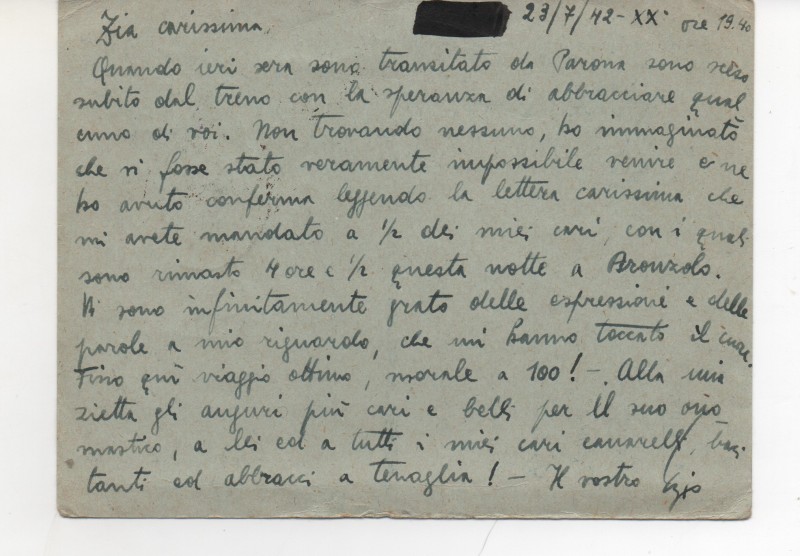 Zia carissima, 23/7/42-XX° ore 19.40
Quando ieri sera sono transitato da Parona sono sceso
subito dal treno con la speranza di abbracciare qual
cuno di voi. Non trovando nessuno, ho immaginato
che vi fosse stato veramente impossibile venire e ne
ho avuto conferma leggendo la lettera carissima che
mi avete mandato a ½ dei miei cari, con i quali
sono rimasto 4 ore e ½ questa notte a Bronzolo.
Vi sono infinitamente grato delle espressioni e delle
parole a mio riguardo, che mi hanno toccato il cuore.
Fino qui viaggio ottimo, morale a 100! -. Alla mia
zietta gli auguri più cari e belli per il suo ono
mastico, a lei ed a tutti i miei cari, baci
tanti ed abbracci a tenaglia! - Il vostro